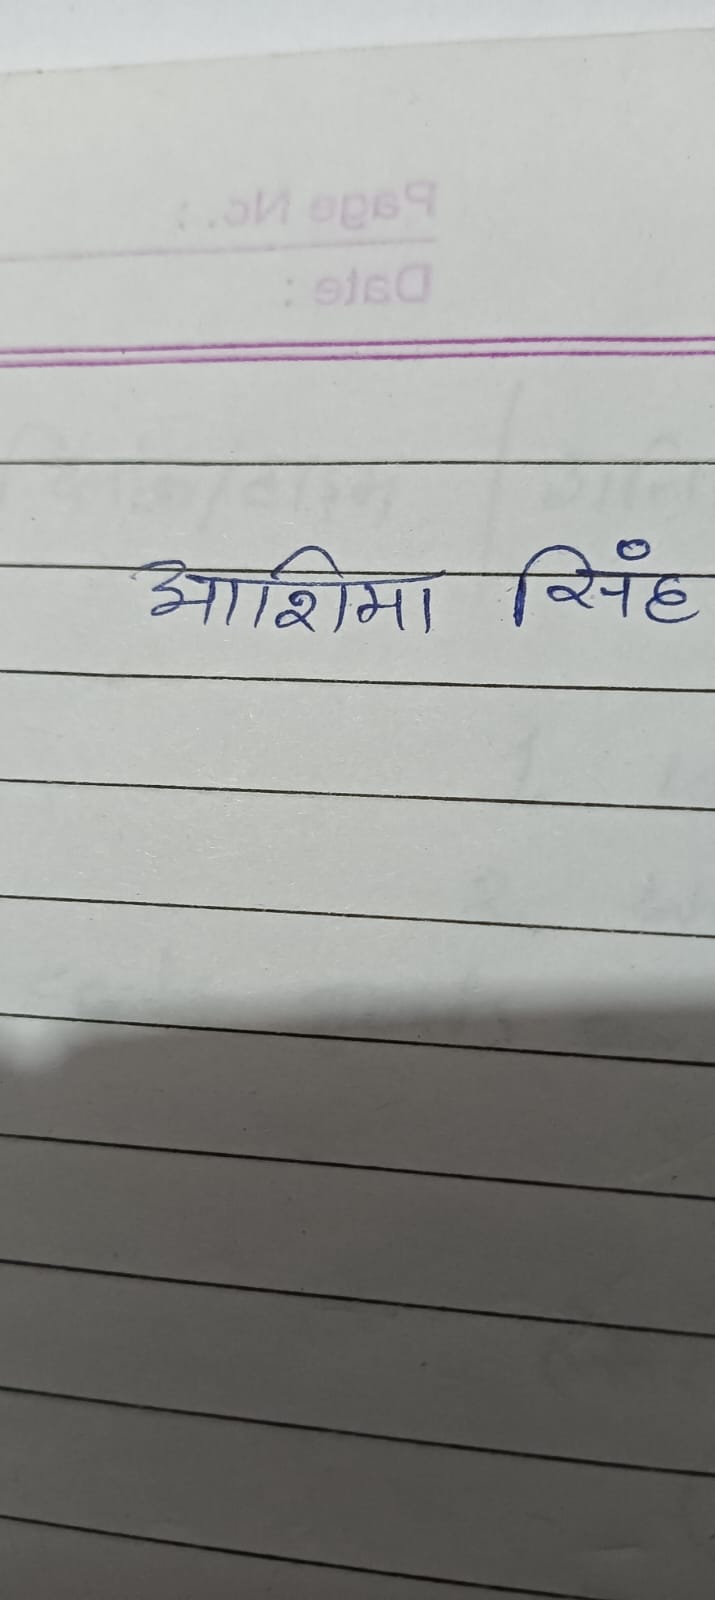 Page No. :
Date :
आशिमा सिंह